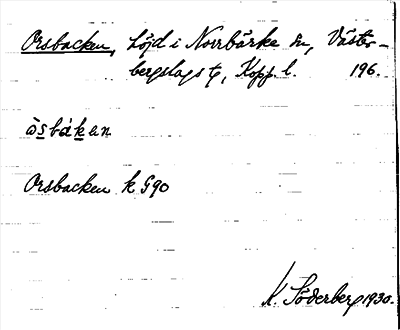 Orsbacken, höjd i Norrbärke sn, Väster-
bergslags tg, Kopp. l. 196.
òs̲bák̲en
Orsbacken k G90
K. Söderberg 1930.